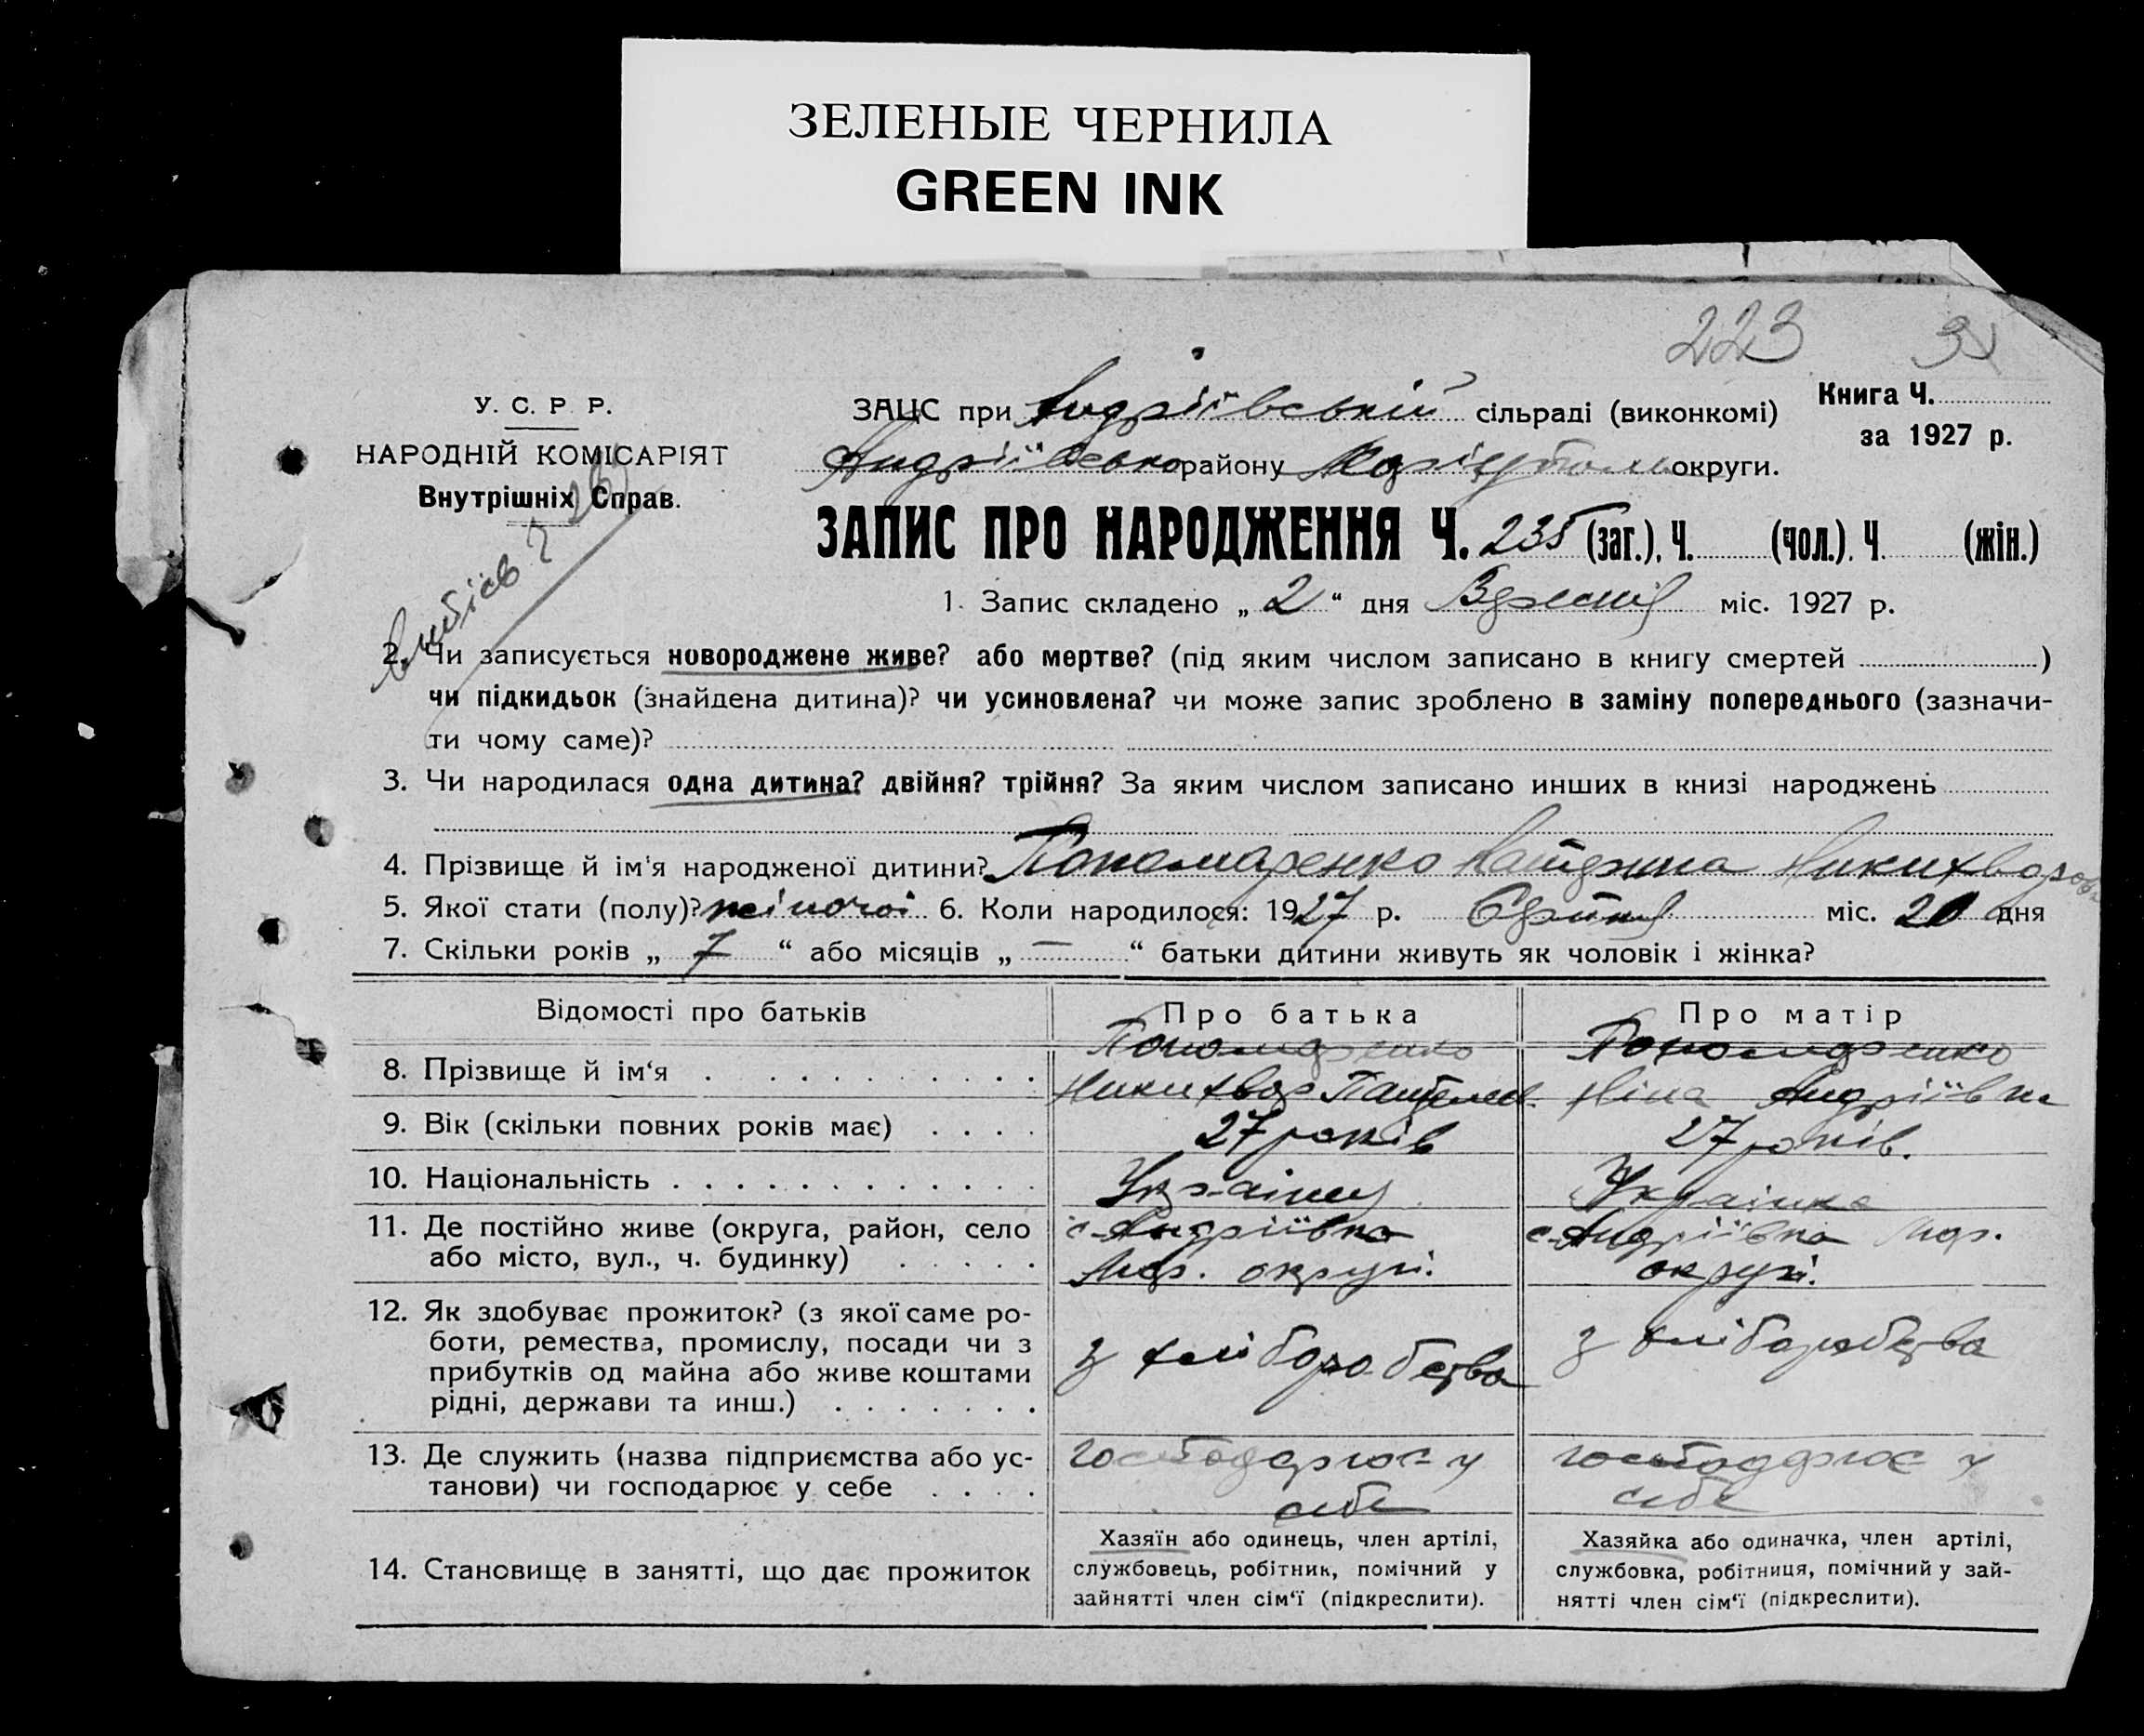 ЗЕЛЕНЫЕ ЧЕРНИЛА
GREEN INK
223
У. С. Р. Р.
НАРОДНІЙ КОМІСАРІЯТ
Внутрішніх Справ.
ЗАЦС при Андріївській сільраді (виконкомі)
Книга Ч.
за 1927 р.
Андріївсько району Маріупольс округи.
ЗАПИС ПРО НАРОДЖЕННЯ Ч. 235 (заг.), Ч. (чол.). Ч (жін.)
1. Запис складено „ 2 “ дня Вересня міс. 1927 р.
2. Чи записується новороджене живе? або мертве? (під яким числом записано в книгу смертей )
чи підкидьок (знайдена дитина)? чи усиновлена? чи може запис зроблено в заміну попереднього (зазначи-
ти чому саме)?
3. Чи народилася одна дитина? двійня? трійня? За яким числом записано инших в книзі народжень
4. Прізвище й ім'я народженої дитини? Пономаренко Катерина Никихворовн
5. Якої стати (полу)? жіночої 6. Коли народилося: 1927 р. Серпня міс. 20 дня
7. Скільки років „ 7 “ або місяців „ — “ батьки дитини живуть як чоловік і жінка?
Відомості про батьків
Про батька
Про матір
8. Прізвище й ім‘я
Пономаренко
Никихвор Пантелей.
Пономаренко
Ніна Андріївна
9. Вік (скільки повних років має)
27 років
27 років.
10. Національність
Українец
Українка
11. Де постійно живе (округа, район, село
або місто, вул., ч. будинку)
с. Андріївка
Мар. округи.
с. Андріївка Мар.
округи.
12. Як здобуває прожиток? (з якої саме ро-
боти, ремества, промислу, посади чи з
прибутків од майна або живе коштами
рідні, держави та инш.)
з хліборобства
з хліборобства
13. Де служить (назва підприємства або ус-
танови) чи господарює у себе
господарює у
себе
господарює у
себе
14. Становище в занятті, що дає прожиток
Хазяїн або одинець, член артілі,
службовець, робітник, помічний у
зайнятті член сім‘ї (підкреслити).
Хазяйка або одиначка, член артілі,
службовка, робітниця, помічний у зай-
нятті член сім‘ї (підкреслити).